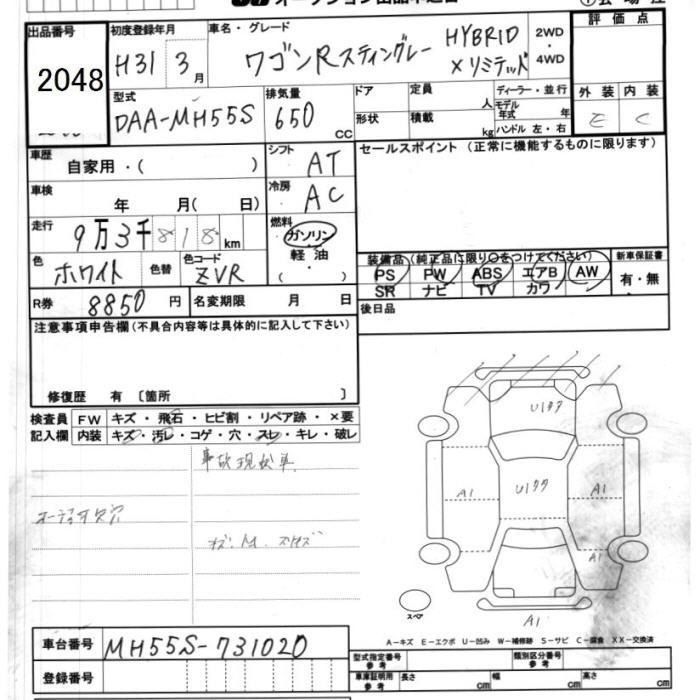 出品番号
2048
初度登録年月
H31 3月
車名・グレード
ワゴンRスティングレー HYBRID Xリミテッド
2WD・4WD
評価点
外装 内装
E C
型式
DAA-MH55S
排気量
650 cc
ドア
形状
定員 人
積載 kg
ディーラー・並行
モデル年式 年
ハンドル 左・右
車歴
自家用・( )
シフト
AT
セールスポイント (正常に機能するものに限ります)
車検
年 月( 日)
冷房
AC
走行
9万3千818km
燃料
ガソリン
軽油
( )
色
ホワイト
色替
色コード
ZVR
装備品 (純正品に限り○をつけてください)
PS PW ABS エアB AW
SR ナビ TV カワ
新車保証書
有・無
R券 8850円
名変期限 月 日
後日品
注意事項申告欄(不具合内容等は具体的に記入して下さい)
修復歴 有〔箇所 〕
検査員記入欄
FW キズ・飛石・ヒビ割・リペア跡・×要
内装 キズ・汚レ・コゲ・穴・スレ・キレ・破レ
事故現状車
オーディオ欠穴
U177
A1 U177 A1
A1
スペア
A1
A−キズ E−エクボ U−凹み W−補修跡 S−サビ C−腐食 XX−交換済
車台番号 MH55S-731020
登録番号
型式指定番号 参考
類別区分番号 参考
車庫証明用 参考
長さ cm 幅 cm 高さ cm